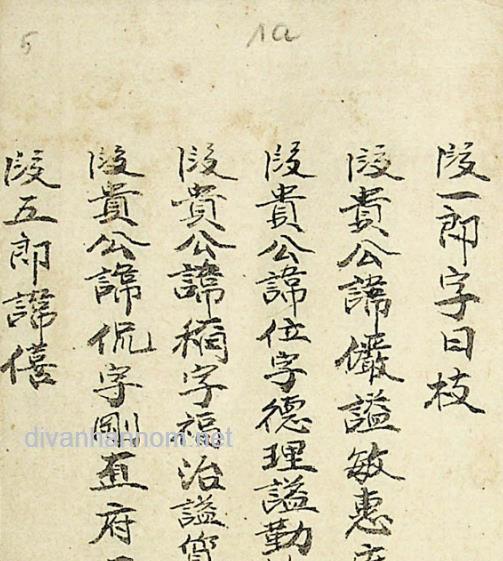 1a
5
段一郎字曰枝
段貴公諱儼謚敏惠府
段貴公諱位字德理謚勤
段貴公諱穪字福治謚
段貴公諱侃字剛直府
段五郎諱僖
divanhannom.net